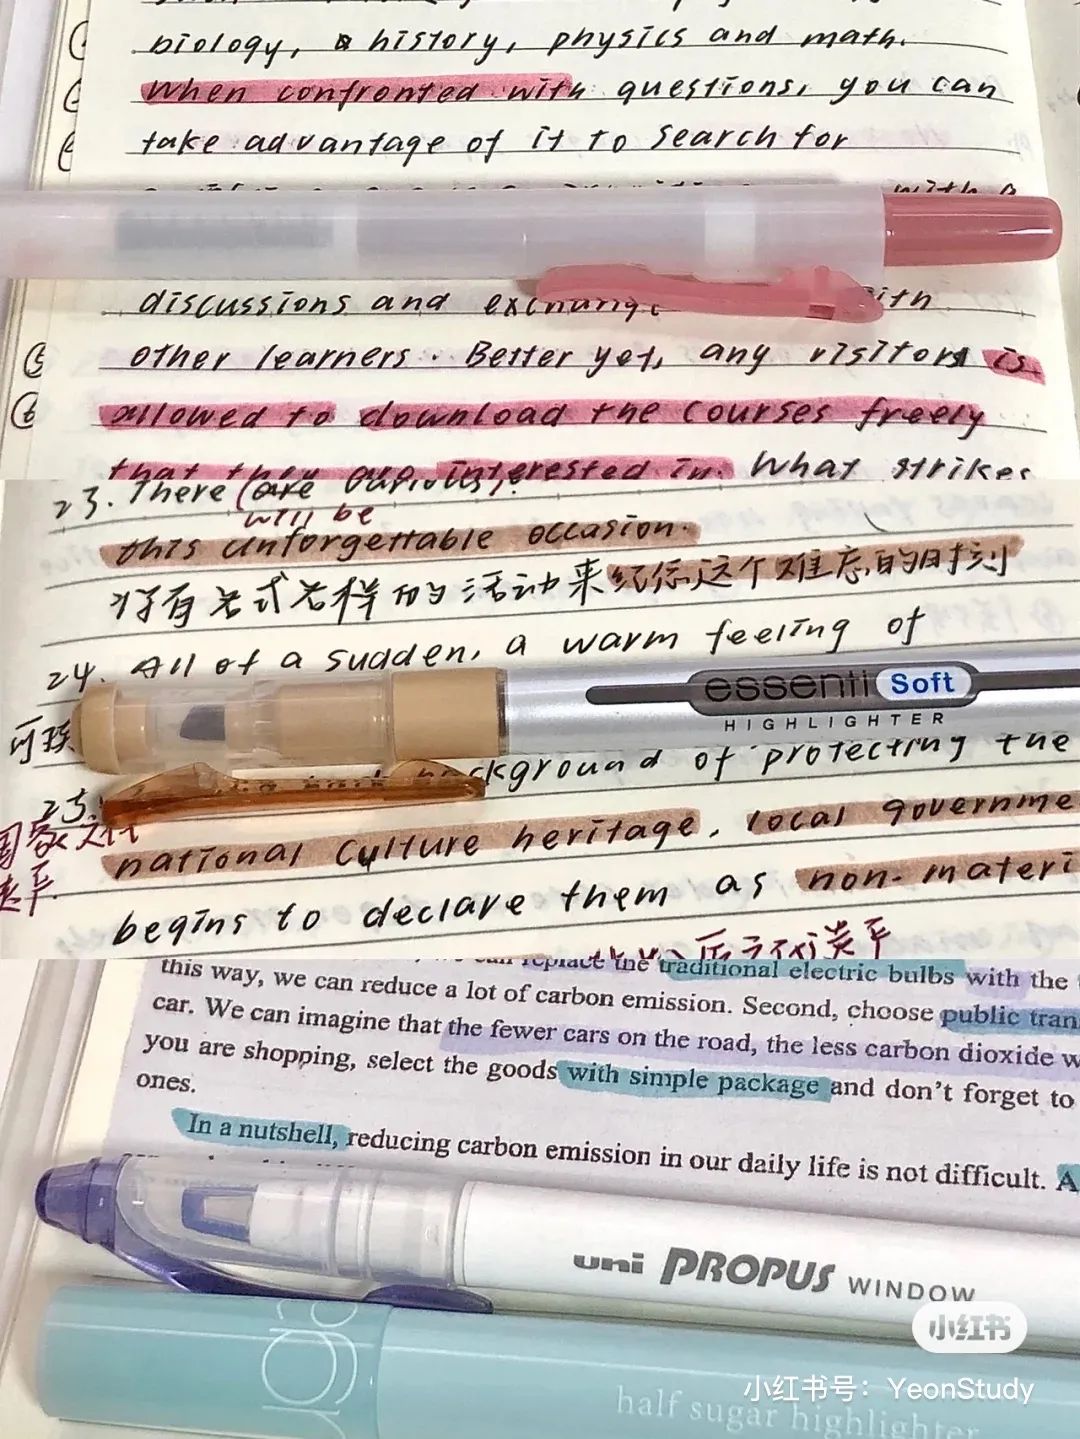 biology, history, physics and math.
When confronted with questions, you can
take advantage of it to search for
with a
discussions and exchange with
other learners. Better yet, any visitors is
allowed to download the courses freely
that they are interested in. What strikes
23. There (are various).
will be
this unforgettable occasion.
将有各式各样的活动来纪念这个难忘的时刻
24. All of a sudden, a warm feeling of
essenti Soft
HIGHLIGHTER
25.
background of protecting the
国家文化
national culture heritage, local governme
begins to declare them as non-materi
can replace the traditional electric bulbs with the
this way, we can reduce a lot of carbon emission. Second, choose public tran
car. We can imagine that the fewer cars on the road, the less carbon dioxide w
you are shopping, select the goods with simple package and don't forget to
ones.
In a nutshell, reducing carbon emission in our daily life is not difficult. A
uni PROPUS WINDOW
小红书
小红书号：YeonStudy
half sugar highlighter